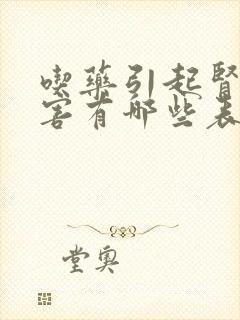 喫藥引起腎
害有哪些表
堂奥